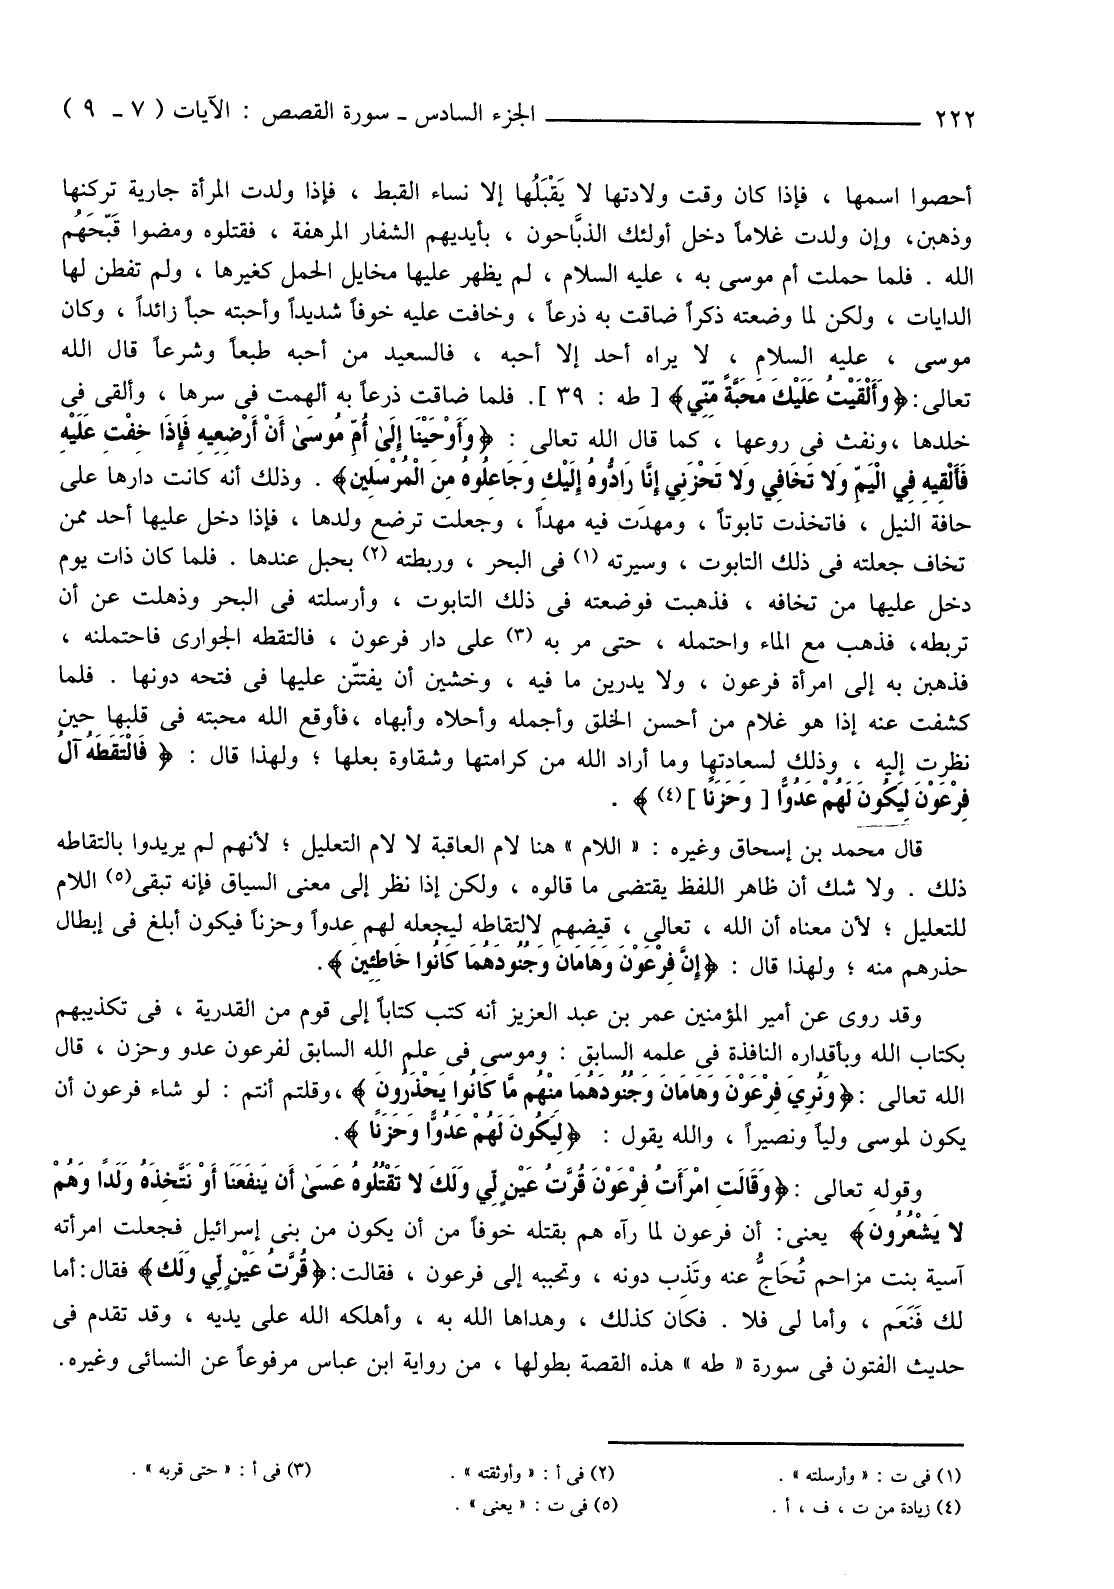 ٢٢٢ ــــــــــ الجزء السادس ـ سورة القصص : الآيات ( ٧ ـ ٩ )
أحصوا اسمها ، فإذا كان وقت ولادتها لا يَقْبَلُها إلا نساء القبط ، فإذا ولدت المرأة جارية تركنها
وذهبن، وإن ولدت غلاماً دخل أولئك الذبَّاحون ، بأيديهم الشفار المرهفة ، فقتلوه ومضوا قَبَّحَهُم
الله . فلما حملت أم موسى به ، عليه السلام ، لم يظهر عليها مخايل الحمل كغيرها ، ولم تفطن لها
الدايات ، ولكن لما وضعته ذكراً ضاقت به ذرعاً ، وخافت عليه خوفاً شديداً وأحبته حباً زائداً ، وكان
موسى ، عليه السلام ، لا يراه أحد إلا أحبه ، فالسعيد من أحبه طبعاً وشرعاً قال الله
تعالى: ﴿وَأَلْقَيْتُ عَلَيْكَ مَحَبَّةً مِّنِّي﴾ [ طه : ٣٩ ]. فلما ضاقت ذرعاً به ألهمت فى سرها ، وألقى فى
خلدها ،ونفث فى روعها ، كما قال الله تعالى : ﴿وَأَوْحَيْنَا إِلَىٰ أُمِّ مُوسَىٰ أَنْ أَرْضِعِيهِ فَإِذَا خِفْتِ عَلَيْهِ
فَأَلْقِيهِ فِي الْيَمِّ وَلا تَخَافِي وَلا تَحْزَنِي إِنَّا رَادُّوهُ إِلَيْكِ وَجَاعِلُوهُ مِنَ الْمُرْسَلِين﴾ . وذلك أنه كانت دارها على
حافة النيل ، فاتخذت تابوتاً ، ومهدَت فيه مهداً ، وجعلت ترضع ولدها ، فإذا دخل عليها أحد ممن
تخاف جعلته فى ذلك التابوت ، وسيرته (١) فى البحر ، وربطته (٢) بحبل عندها . فلما كان ذات يوم
دخل عليها من تخافه ، فذهبت فوضعته فى ذلك التابوت ، وأرسلته فى البحر وذهلت عن أن
تربطه، فذهب مع الماء واحتمله ، حتى مر به (٣) على دار فرعون ، فالتقطه الجوارى فاحتملنه ،
فذهبن به إلى امرأة فرعون ، ولا يدرين ما فيه ، وخشين أن يفتتّن عليها فى فتحه دونها . فلما
كشفت عنه إذا هو غلام من أحسن الخلق وأجمله وأحلاه وأبهاه ،فأوقع الله محبته فى قلبها حين
نظرت إليه ، وذلك لسعادتها وما أراد الله من كرامتها وشقاوة بعلها ؛ ولهذا قال : ﴿ فَالْتَقَطَهُ آلُ
فِرْعَوْنَ لِيَكُونَ لَهُمْ عَدُوًّا [ وَحَزَنًا ] (٤) ﴾ .
قال محمد بن إسحاق وغيره : « اللام » هنا لام العاقبة لا لام التعليل ؛ لأنهم لم يريدوا بالتقاطه
ذلك . ولا شك أن ظاهر اللفظ يقتضى ما قالوه ، ولكن إذا نظر إلى معنى السياق فإنه تبقى(٥) اللام
للتعليل ؛ لأن معناه أن الله ، تعالى ، قيضهم لالتقاطه ليجعله لهم عدواً وحزناً فيكون أبلغ فى إبطال
حذرهم منه ؛ ولهذا قال : ﴿إِنَّ فِرْعَوْنَ وَهَامَانَ وَجُنُودَهُمَا كَانُوا خَاطِئِينَ﴾.
وقد روى عن أمير المؤمنين عمر بن عبد العزيز أنه كتب كتاباً إلى قوم من القدرية ، فى تكذيبهم
بكتاب الله وبأقداره النافذة فى علمه السابق : وموسى فى علم الله السابق لفرعون عدو وحزن ، قال
الله تعالى :﴿وَنُرِيَ فِرْعَوْنَ وَهَامَانَ وَجُنُودَهُمَا مِنْهُم مَّا كَانُوا يَحْذَرُونَ ﴾ ،وقلتم أنتم : لو شاء فرعون أن
يكون لموسى ولياً ونصيراً ، والله يقول : ﴿لِيَكُونَ لَهُمْ عَدُوًّا وَحَزَنًا ﴾.
وقوله تعالى :﴿وَقَالَتِ امْرَأَتُ فِرْعَوْنَ قُرَّتُ عَيْنٍ لِّي وَلَكَ لا تَقْتُلُوهُ عَسَىٰ أَن يَنفَعَنَا أَوْ نَتَّخِذَهُ وَلَدًا وَهُمْ
لا يَشْعُرُون﴾ يعنى: أن فرعون لما رآه هم بقتله خوفاً من أن يكون من بنى إسرائيل فجعلت امرأته
آسية بنت مزاحم تُحَاجُّ عنه وتَذب دونه ، وتحببه إلى فرعون ، فقالت: ﴿قُرَّتُ عَيْنٍ لِّي وَلَك﴾ فقال: أما
لك فَنَعَم ، وأما لى فلا . فكان كذلك ، وهداها الله به ، وأهلكه الله على يديه ، وقد تقدم فى
حديث الفتون فى سورة « طه » هذه القصة بطولها ، من رواية ابن عباس مرفوعاً عن النسائى وغيره.
(١) فى ت : « وأرسلته » . (٢) فى أ : « وأوثقته » . (٣) فى أ : « حتى قربه » .
(٤) زيادة من ت ، ف ، أ . (٥) فى ت : « يعنى » .